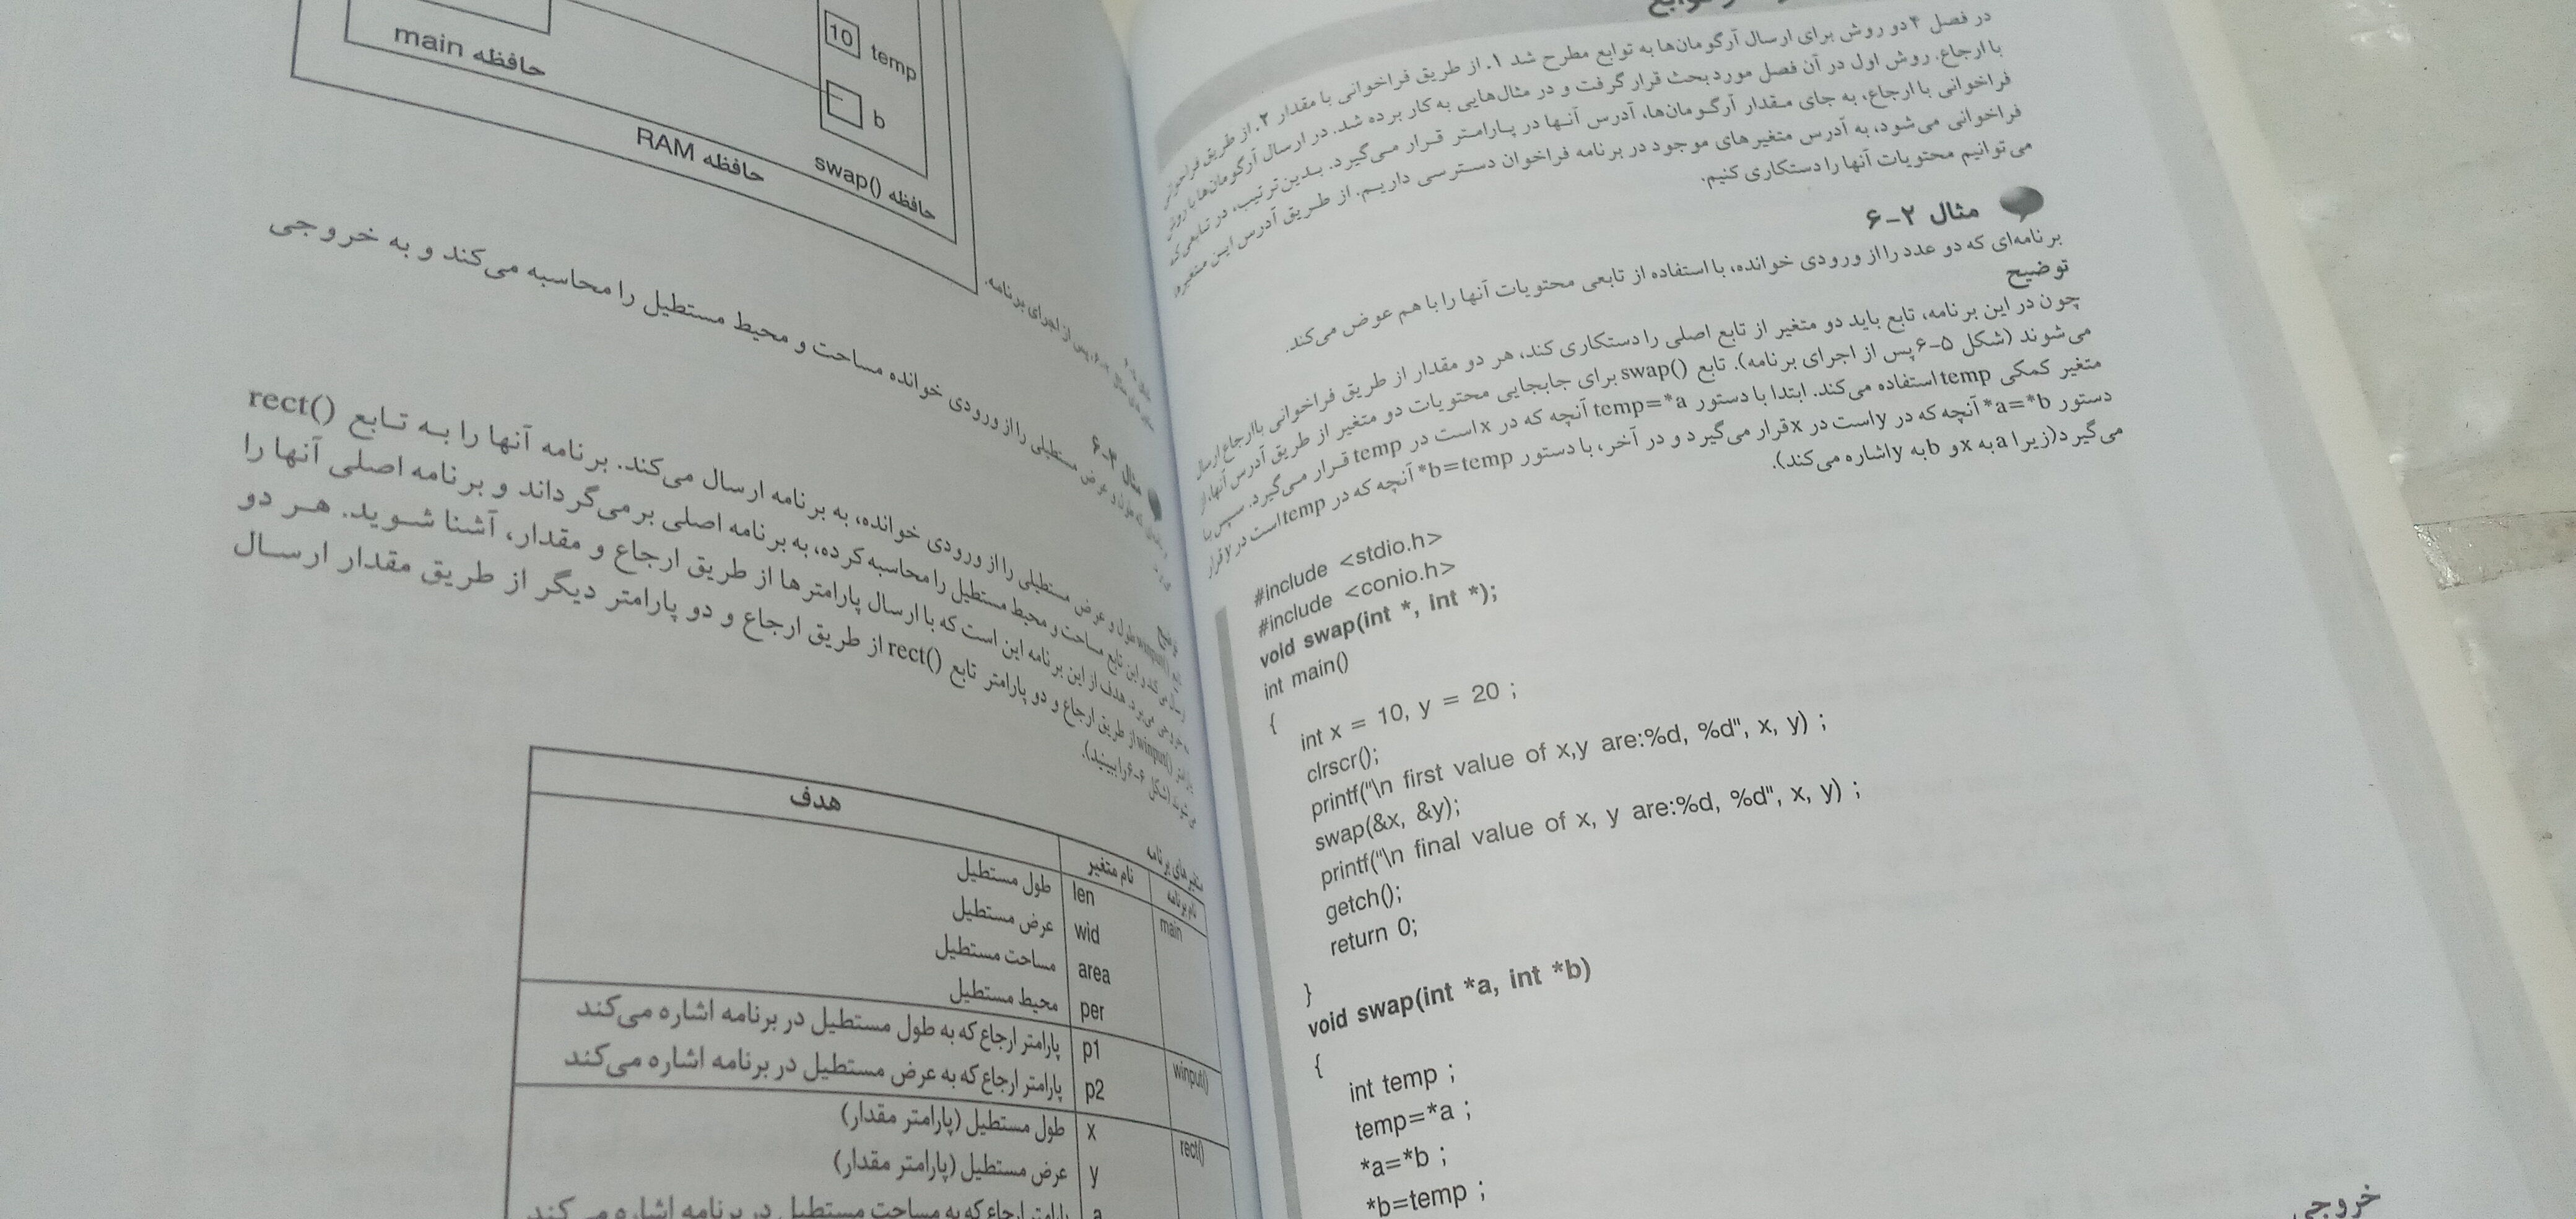 در فصل ۴ دو روش برای ارسال آرگومان‌ها به توابع مطرح شد ۱. از طریق فراخوانی با مقدار ۲. از طریق فراخوانی
با ارجاع. روش اول در آن فصل مورد بحث قرار گرفت و در مثال‌هایی به کار برده شد. در ارسال آرگومان‌ها با روش
فراخوانی با ارجاع، به جای مقدار آرگومان‌ها، آدرس آنها در پارامتر قرار می‌گیرد. بدین‌ترتیب، در تابعی که
فراخوانی می‌شود، به آدرس متغیرهای موجود در برنامه فراخوان دسترسی داریم. از طریق آدرس این متغیرها
می‌توانیم محتویات آنها را دستکاری کنیم.
مثال ۲-۶
برنامه‌ای که دو عدد را از ورودی خوانده، با استفاده از تابعی محتویات آنها را با هم عوض می‌کند.
توضیح
چون در این برنامه، تابع باید دو متغیر از تابع اصلی را دستکاری کند، هر دو مقدار از طریق فراخوانی با ارجاع ارسال
می‌شوند (شکل ۵-۶ پس از اجرای برنامه). تابع swap() برای جابجایی محتویات دو متغیر از طریق آدرس آنها، از
متغیر کمکی temp استفاده می‌کند. ابتدا با دستور temp=*a آنچه که در x است در temp قرار می‌گیرد. سپس با
دستور *a=*b آنچه که در y است در x قرار می‌گیرد و در آخر، با دستور *b=temp آنچه که در temp است در y قرار
می‌گیرد(زیرا a به x و b به y اشاره می‌کند).
#include <stdio.h>
#include <conio.h>
void swap(int *, int *);
int main()
{
int x = 10, y = 20 ;
clrscr();
printf("\n first value of x,y are:%d, %d", x, y) ;
swap(&x, &y);
printf("\n final value of x, y are:%d, %d", x, y) ;
getch();
return 0;
}
void swap(int *a, int *b)
{
int temp ;
temp=*a ;
*a=*b ;
*b=temp ;
خروجی
10 temp
b
حافظه main
حافظه swap()
حافظه RAM
پس از اجرای برنامه.
مثال ۳-۶
طول و عرض مستطیلی را از ورودی خوانده مساحت و محیط مستطیل را محاسبه می‌کند و به خروجی
توضیح
winput() طول و عرض مستطیلی را از ورودی خوانده، به برنامه ارسال می‌کند. برنامه آنها را به تابع rect()
ارسال می‌کند و این تابع مساحت و محیط مستطیل را محاسبه کرده، به برنامه اصلی برمی‌گرداند و برنامه اصلی آنها را
به خروجی می‌برد. هدف از این برنامه این است که با ارسال پارامترها از طریق ارجاع و مقدار، آشنا شوید. هر دو
winput() از طریق ارجاع و دو پارامتر تابع rect() از طریق ارجاع و دو پارامتر دیگر از طریق مقدار ارسال
(شکل ۶-۶ را ببینید).
متغیرهای برنامه
نام برنامه نام متغیر هدف
main len طول مستطیل
wid عرض مستطیل
area مساحت مستطیل
per محیط مستطیل
winput() p1 پارامتر ارجاع که به طول مستطیل در برنامه اشاره می‌کند
p2 پارامتر ارجاع که به عرض مستطیل در برنامه اشاره می‌کند
rect() x طول مستطیل (پارامتر مقدار)
y عرض مستطیل (پارامتر مقدار)
a پارامتر ارجاع که به مساحت مستطیل در برنامه اشاره می‌کند